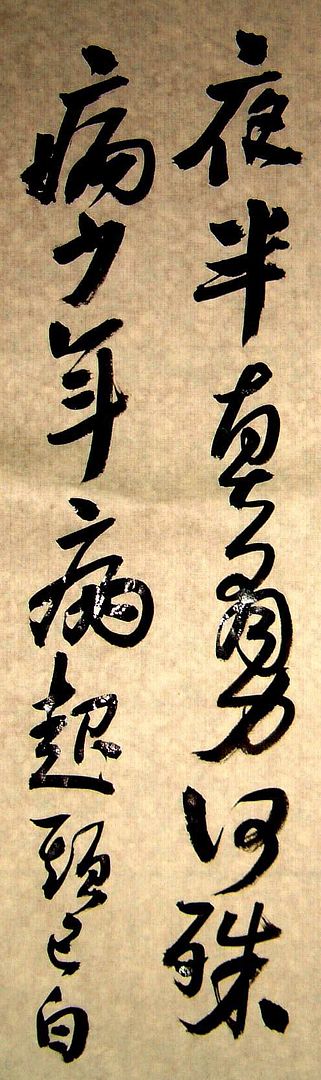 夜半真勇何殊
病少年病起頭已白